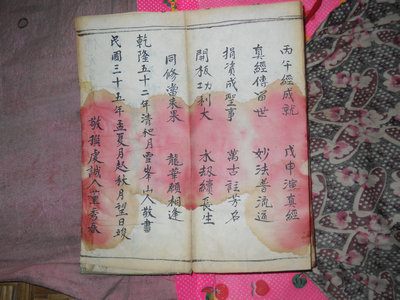 丙午經成就 戊申演真經
真經傳留世 妙法普流通
捐資成聖事 萬古註芳名
開板功利大 永級續長生
同修當來果 龍華願相逢
乾隆五十二年清和月雪峯山人敬書
民國三十五年孟夏月起秋月望日竣
敬撰虔誠人葉秀春